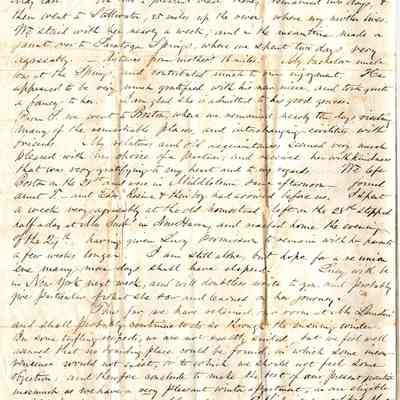 then went to Stillwater, 25 miles up the river where my mother lives.
We staid with her nearly a week, and in the meantime made a
jaunt over to Saratoga Springs, where we spent two days very
agreeably
was at the Springs and contributed much to our enjoyment. He
appeared to be very much gratified with his new niece, and took quite
a fancy to her. I am glad she is admitted to his good graces.
From T. we went to Boston, where we remained nearly ten days visiting
many of the remarkable places, and interchanging civilities with
friends. My relations and old acquaintances seemed very much
pleased with my choice of a partner, and received her with kindness
that was very gratifying to my heart and to my regards. We left
Boston on the and were in Middletown same afternoon found
aunt had arrived before us. I spent
a week very agreeably at the old homestead left on the 28th stopped
half a day at in New Haven, and reached home the evening
of the 29th having given Lucy permission to remain with her parents
a few weeks longer. I am still alone, but hope for a reunion
ere many more days shall have elapsed. Lucy will be
in New York next week, and will doubtless write to you and probably
give particulars of what she saw and learned on her journey.
Thus far we have retained our room at
and shall probably continue to do so through the ensuing winter.
In some trifling respects, we are not exactly suited, but we feel well
assured that no boarding place could be found, in which some incon-
venience would not exist, or to which we should not feel some
objection, and therefore conclude to make the best of our present quarters
inasmuch as we have a very pleasant winter apartment, in an eligible